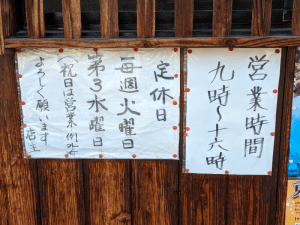 営業時間
九時～十六時
定休日
毎週火曜日
第3水曜日
(祝日は営業・例外也)
よろしく願います
店主